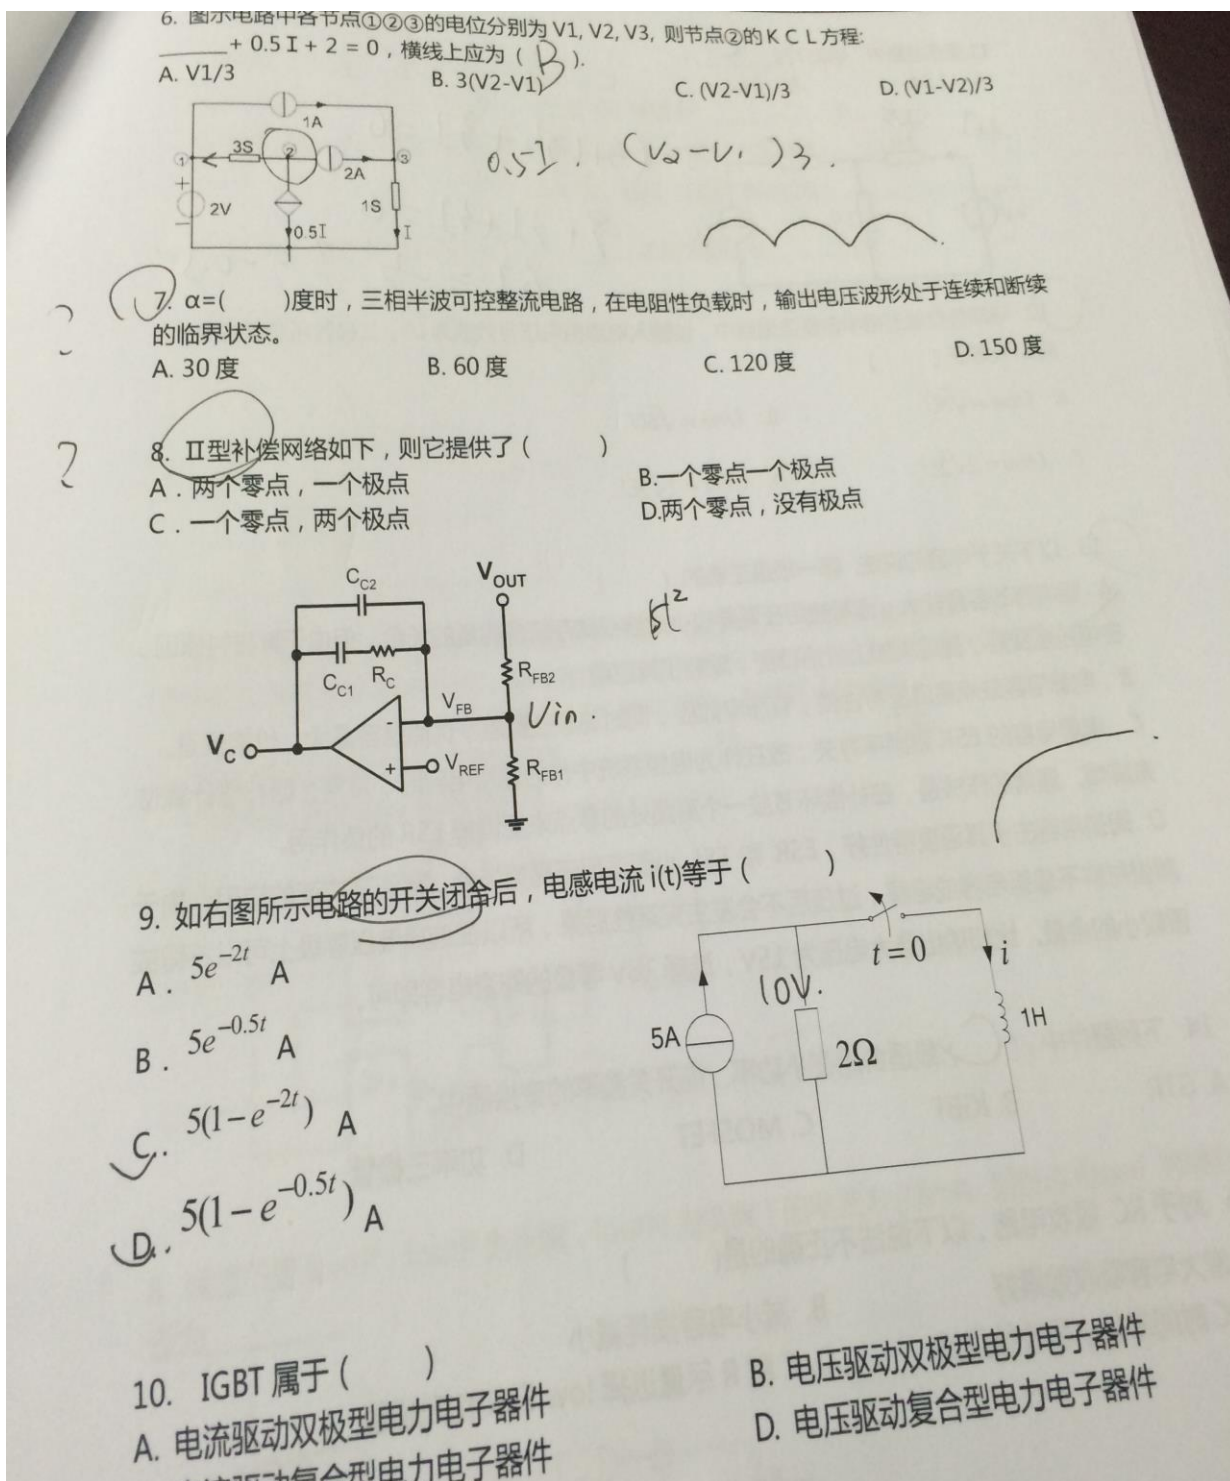 6. 图示电路中各节点①②③的电位分别为 V1, V2, V3, 则节点②的 K C L 方程:
______+ 0.5 I + 2 = 0，横线上应为（ B ）.
A. V1/3 B. 3(V2-V1) C. (V2-V1)/3 D. (V1-V2)/3
1A
0.5I . (V2-V1)3.
1 3S 2 2A 3
+ 2V - 0.5I 1S I
7. α=( )度时，三相半波可控整流电路，在电阻性负载时，输出电压波形处于连续和断续
的临界状态。
A. 30 度 B. 60 度 C. 120 度 D. 150 度
? 8. Ⅱ型补偿网络如下，则它提供了（ ）
A．两个零点，一个极点 B.一个零点一个极点
C．一个零点，两个极点 D.两个零点，没有极点
CC2 VOUT
CC1 RC RFB2
VFB Uin.
VC - + VREF RFB1
9. 如右图所示电路的开关闭合后，电感电流 i(t)等于（ ）
A． 5e^-2t A
B． 5e^-0.5t A
C． 5(1-e^-2t) A
D． 5(1-e^-0.5t) A
t=0 i
10V.
5A 2Ω 1H
10. IGBT 属于（ ）
A. 电流驱动双极型电力电子器件 B. 电压驱动双极型电力电子器件
电流驱动复合型电力电子器件 D. 电压驱动复合型电力电子器件